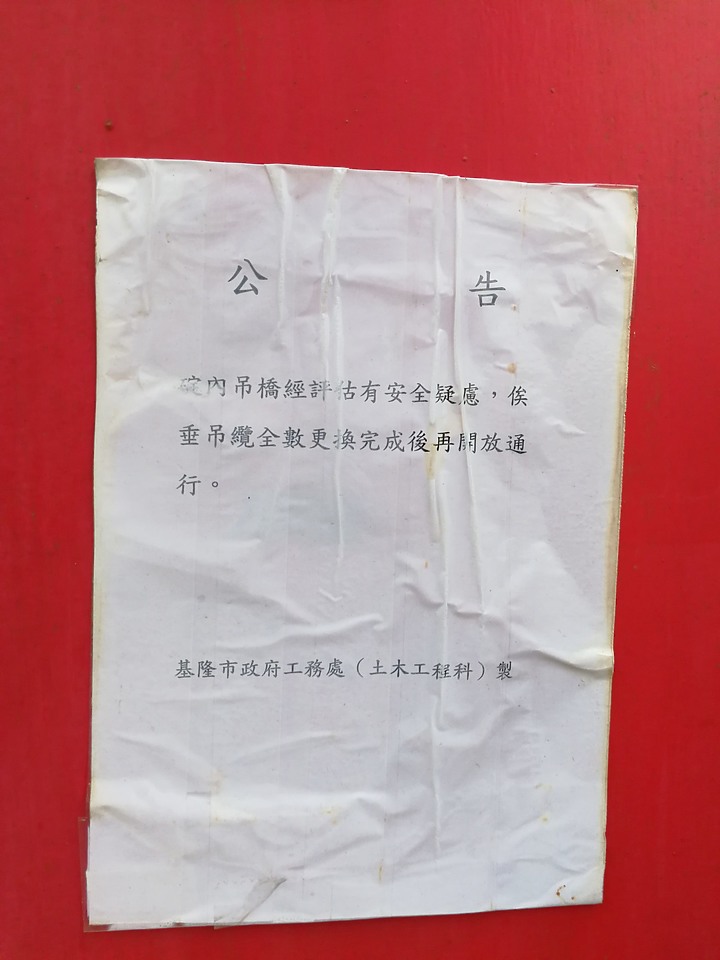 公告
碇內吊橋經評估有安全疑慮，俟
垂吊纜全數更換完成後再開放通
行。
基隆市政府工務處（土木工程科）製